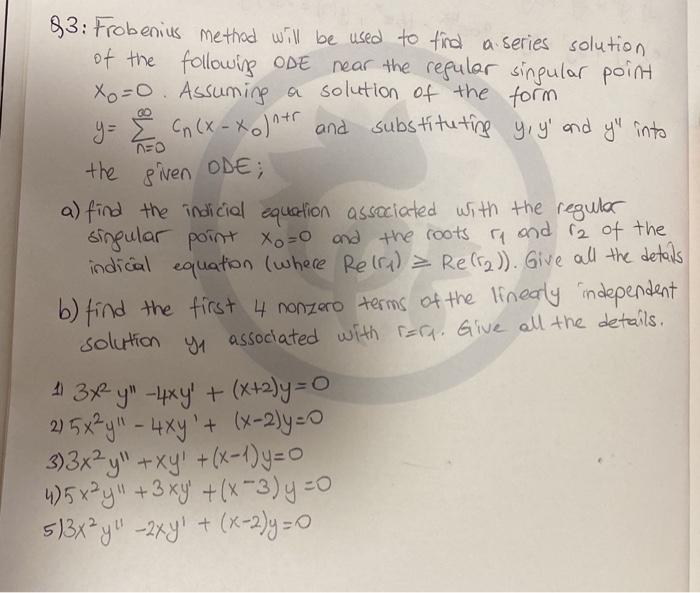 Q3: Frobenius method will be used to find a series solution
of the following ODE near the regular singular point
x₀=0. Assuming a solution of the form
y= ∑_{n=0}^{∞} Cₙ(x-x₀)ⁿ⁺ʳ and substituting y, y' and y" into
the given ODE;
a) find the indicial equation associated with the regular
singular point x₀=0 and the roots r₁ and r₂ of the
indicial equation (where Re(r₁) ≥ Re(r₂)). Give all the details
b) find the first 4 nonzero terms of the linearly independent
solution y₁ associated with r=r₁. Give all the details.
1) 3x² y" -4xy' + (x+2)y=0
2) 5x²y" - 4xy' + (x-2)y=0
3) 3x² y" +xy' +(x-1)y=0
4) 5x²y" +3xy' +(x-3)y=0
5) 3x² y" -2xy' + (x-2)y=0